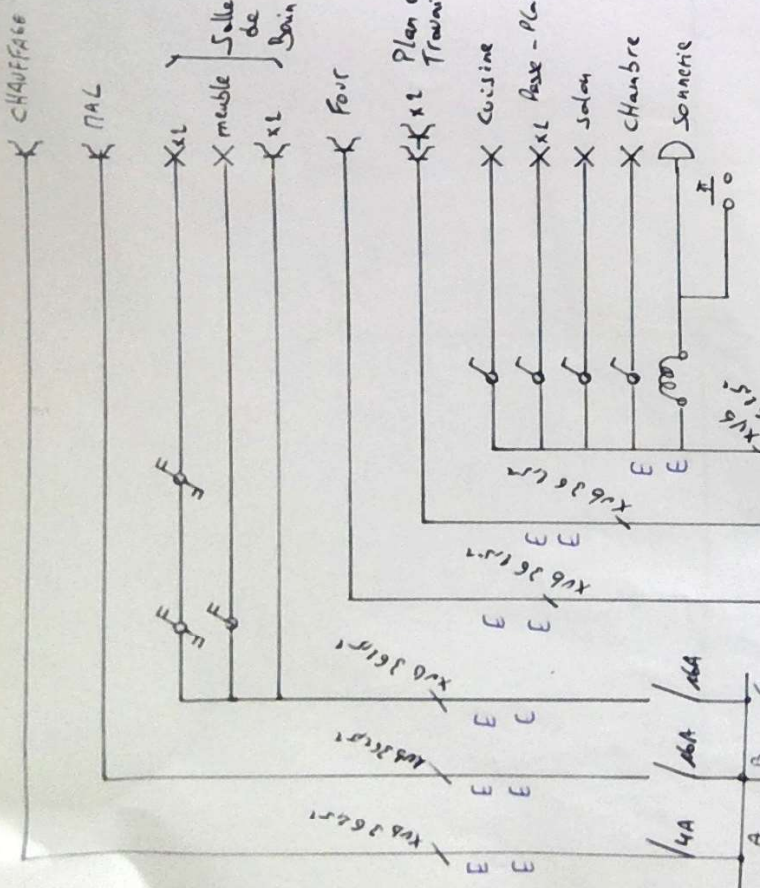 CHAUFFAGE
MAL
x2
meuble
x2
Salle
de
Bain
Four
x2
Plan
Travai
Cuisine
x2 Passe-Pla
Salon
CHambre
Sonnerie
XVB
XVB 3G 2,5²
XVB 3G 2,5²
XVB 3G 2,5²
XVB 3G 2,5²
XVB 3G 2,5²
16A
16A
4A
B
A